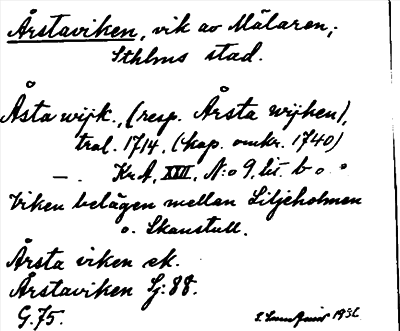 Årstaviken, vik av Mälaren,
Sthlms stad.
Åsta wijk., (resp. Årsta wijken),
tral. 1714, (kop. omkr. 1740)
—. Kr A, XXII, N:o 9, lit. b o. o
Viken belägen mellan Liljeholmen
o. Skanstull.
Årsta viken ek.
Årstaviken Sj: 88.
G. 75. 1936